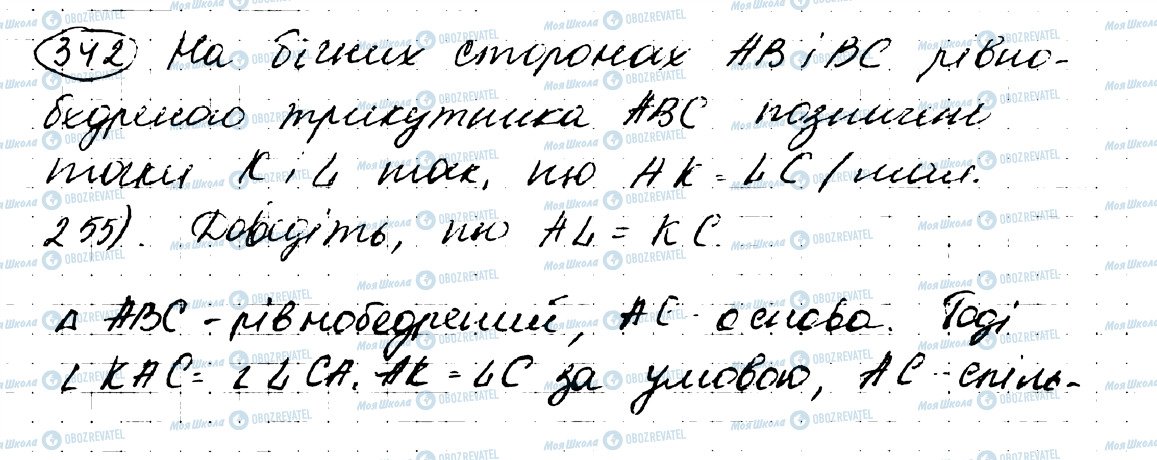 342 На бічних сторонах AB і BC рівно-
бедреного трикутника ABC позначені
точки K і L так, що AK = LC (мал.
255). Доведіть, що AL = KC.
Δ ABC - рівнобедрений, AC - основа. Тоді
∠ KAC = ∠ LCA. AK = LC за умовою, AC - спіль-